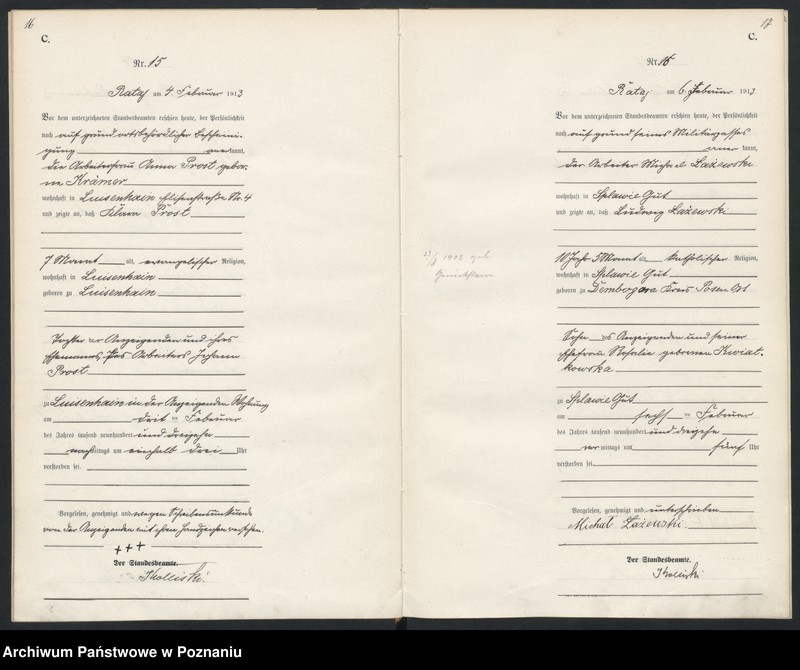 16
C.
Nr. 15
Rataj am 4. Februar 1913
Vor dem unterzeichneten Standesbeamten erschien heute, der Persönlichkeit
nach auf grund ortsbehördlicher Bescheini-
gung kannt,
die Arbeiterfrau Anna Prost, gebor-
ne Krämer
wohnhaft in Luisenhain, Nr. 4
und zeigte an, daß Klara Prost
7 Monat alt, evangelischer Religion,
wohnhaft in Luisenhain
geboren zu Luisenhain
Tochter der Anzeigenden und ihres
Ehemannes, des Arbeiters Johann
Prost
zu Luisenhain in der Anzeigenden Wohnung
am drit ten Februar
des Jahres tausend neunhundert und dreizehn
nachmittags um einhalb drei Uhr
verstorben sei.
Vorgelesen, genehmigt und wegen Schreibensunkunde
von der Anzeigenden mit ihrem Handzeichen versehen.
+++
Der Standesbeamte.
17
C.
Nr. 16
Rataj am 6. Februar 1913
Vor dem unterzeichneten Standesbeamten erschien heute, der Persönlichkeit
nach auf grund seines Militärpasses
kannt,
der Arbeiter Michael Łażewski
wohnhaft in Splawie Gut
und zeigte an, daß Ludwig Łażewski
10 Jahr 5 Monat alt, katholischer Religion,
wohnhaft in Splawie Gut
geboren zu Dembogora Kreis Posen Ost
1902 geb
Sohn des Anzeigenden und seiner
Ehefrau Rosalie geborenen Kwiat-
kowska
zu Splawie Gut
am sechs ten Februar
des Jahres tausend neunhundert und dreizehn
vormittags um fünf Uhr
verstorben sei.
Vorgelesen, genehmigt und unterschrieben
Michał Łażewski
Der Standesbeamte.
Archiwum Państwowe w Poznaniu